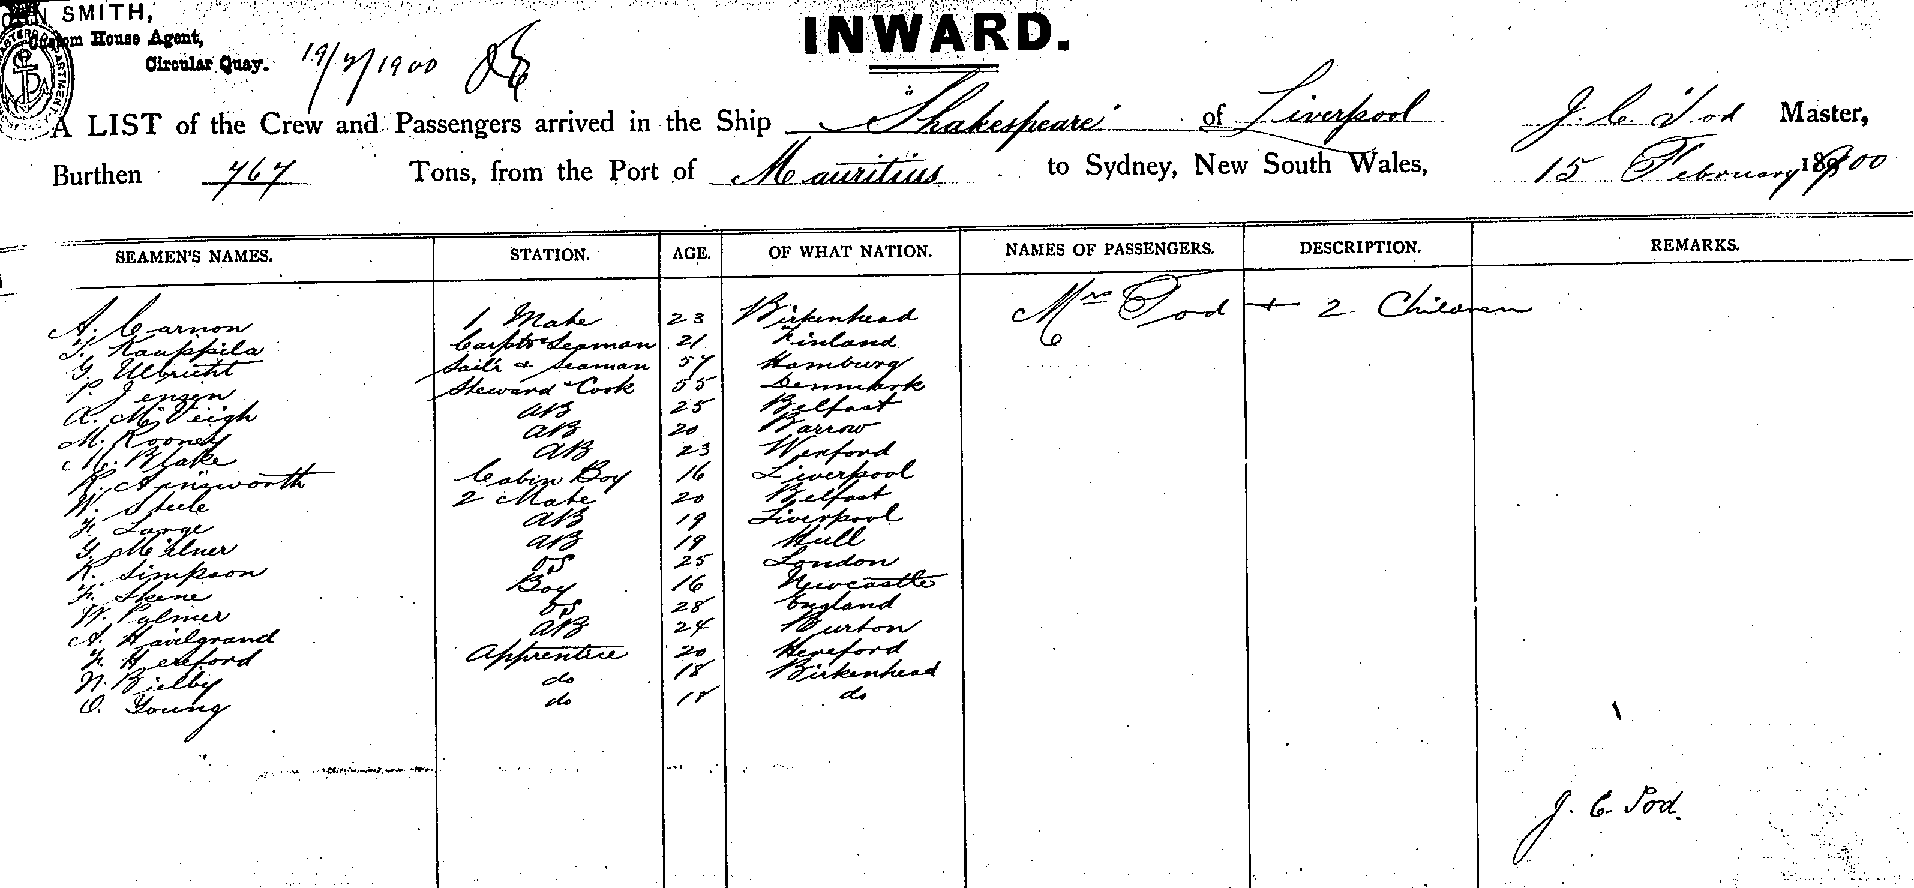 SMITH,
Custom House Agent,
Circular Quay. 19/2/1900
INWARD.
A LIST of the Crew and Passengers arrived in the Ship "Shakespeare" of Liverpool J. C. Tod Master,
Burthen 767 Tons, from the Port of Mauritius to Sydney, New South Wales, 15 February 1900
SEAMEN'S NAMES. STATION. AGE. OF WHAT NATION. NAMES OF PASSENGERS. DESCRIPTION. REMARKS.
A. Carnon 1 Mate 23 Birkenhead Mrs Tod + 2 Children
T. Kauppila Carptr & Seaman 21 Finland
G. Ulbricht Sailr & Seaman 57 Hamburg
P. Jensen Steward & Cook 55 Denmark
A. McVeigh AB 25 Belfast
M. Rooney AB 20 Barrow
M. Blake AB 23 Wexford
R. Ainsworth Cabin Boy 16 Liverpool
W. Steele 2 Mate 20 Belfast
F. Large AB 19 Liverpool
G. Milner AB 19 Hull
R. Simpson OS 25 London
F. Skene Boy 16 Newcastle
W. Palmer OS 28 England
A. Havelgrand AB 24 Burton
F. Hereford Apprentice 20 Hereford
N. Bielby do 18 Birkenhead
O. Young do 18 do
J. C. Tod.